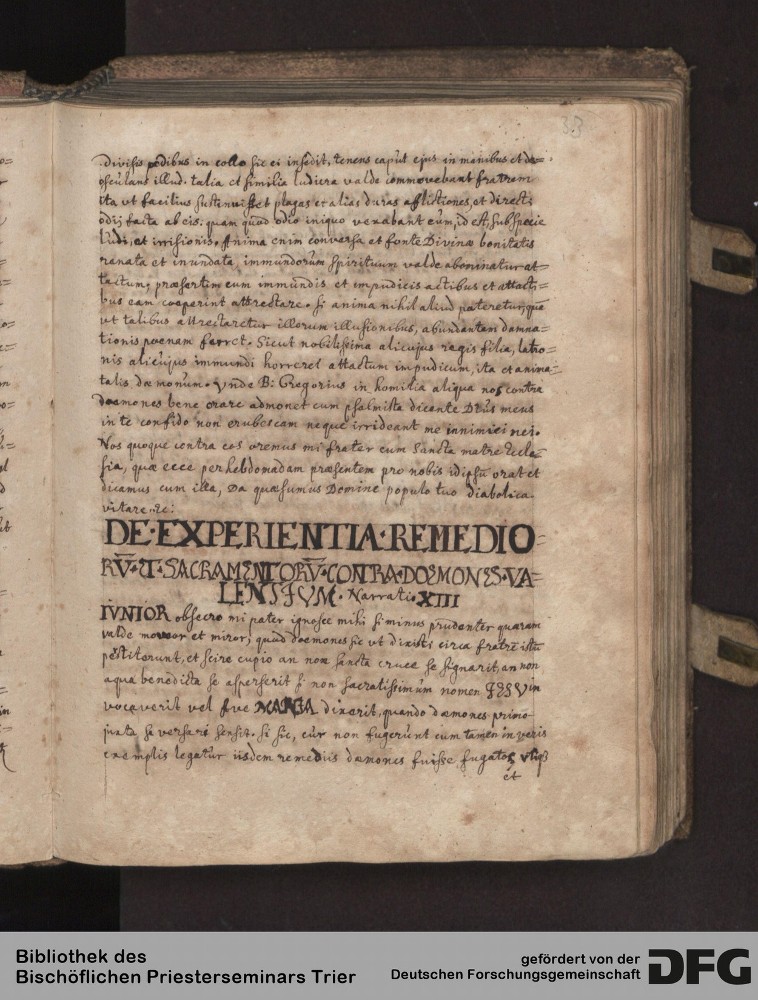 33
divisis pedibus in collo sic ei insedit, tenens caput ejus in manibus et de=
osculans illud. talia et similia ludicra valde commovebant fratrem
ita vt facilius sustinuisset plagas et alias duras afflictiones, et directi
odij facta ab eis: quam quod odio iniquo vexabant eum, id est, sub specie
ludi, et irrisionis. Anima enim conversa et fonte Divinæ bonitatis
ranata et inundata, immundorum spirituum valde abominatur at=
tactum, præsertim cum immundis et impudicis actibus et attacti=
bus eam cœperint attrectare. si anima nihil aliud pateretur, quã
vt talibus attrectaretur illorum illusionibus, abundantem damna=
tionis pœnam ferret. Sicut nobilissima alicujus regis filia, latro=
nis alicujus immundi horreret attactum impudicum, ita et anima=
talis dœmonum. Vnde B: Gregorius in homilia aliqua nos contra
dœmones bene orare admonet cum psalmista dicente Deus meus
in te confido non erubescam neque irrideant me innimici mei.
Nos quoque contra eos oremus mi frater cum Sancta matre Eccle=
sia, quæ ecce per hebdomadam præsentem pro nobis idipsũ orat et
dicamus cum illa, Da quæsumus Domine populo tuo diabolica.
vitare &c:
DE·EXPERIENTIA·REMEDIO=
RV̄·ET·SACRAMENTORV̄·CONTRA·DOEMONES·VA=
LENTIVM· Narratio XIII
IVNIOR obsecro mi pater ignosce mihi si minus prudenter quæram
valde moveor et miror, quod dœmones sic vt dixisti circa fratrẽ istũ
perstiterunt, et scire cupio an non sancta cruce se signarit, an non
aqua benedicta se asperserit si non sacratissimum nomen IESV in
vocaverit vel Ave MARIA dixerit, quando dæmones primo
juxta se versari sensit. Si sic, cur non fugerunt cum tamen in veris
exemplis legatur iisdem remediis dæmones fuisse fugatos vtiq
et
Bibliothek des
Bischöflichen Priesterseminars Trier
gefördert von der
Deutschen Forschungsgemeinschaft
DFG